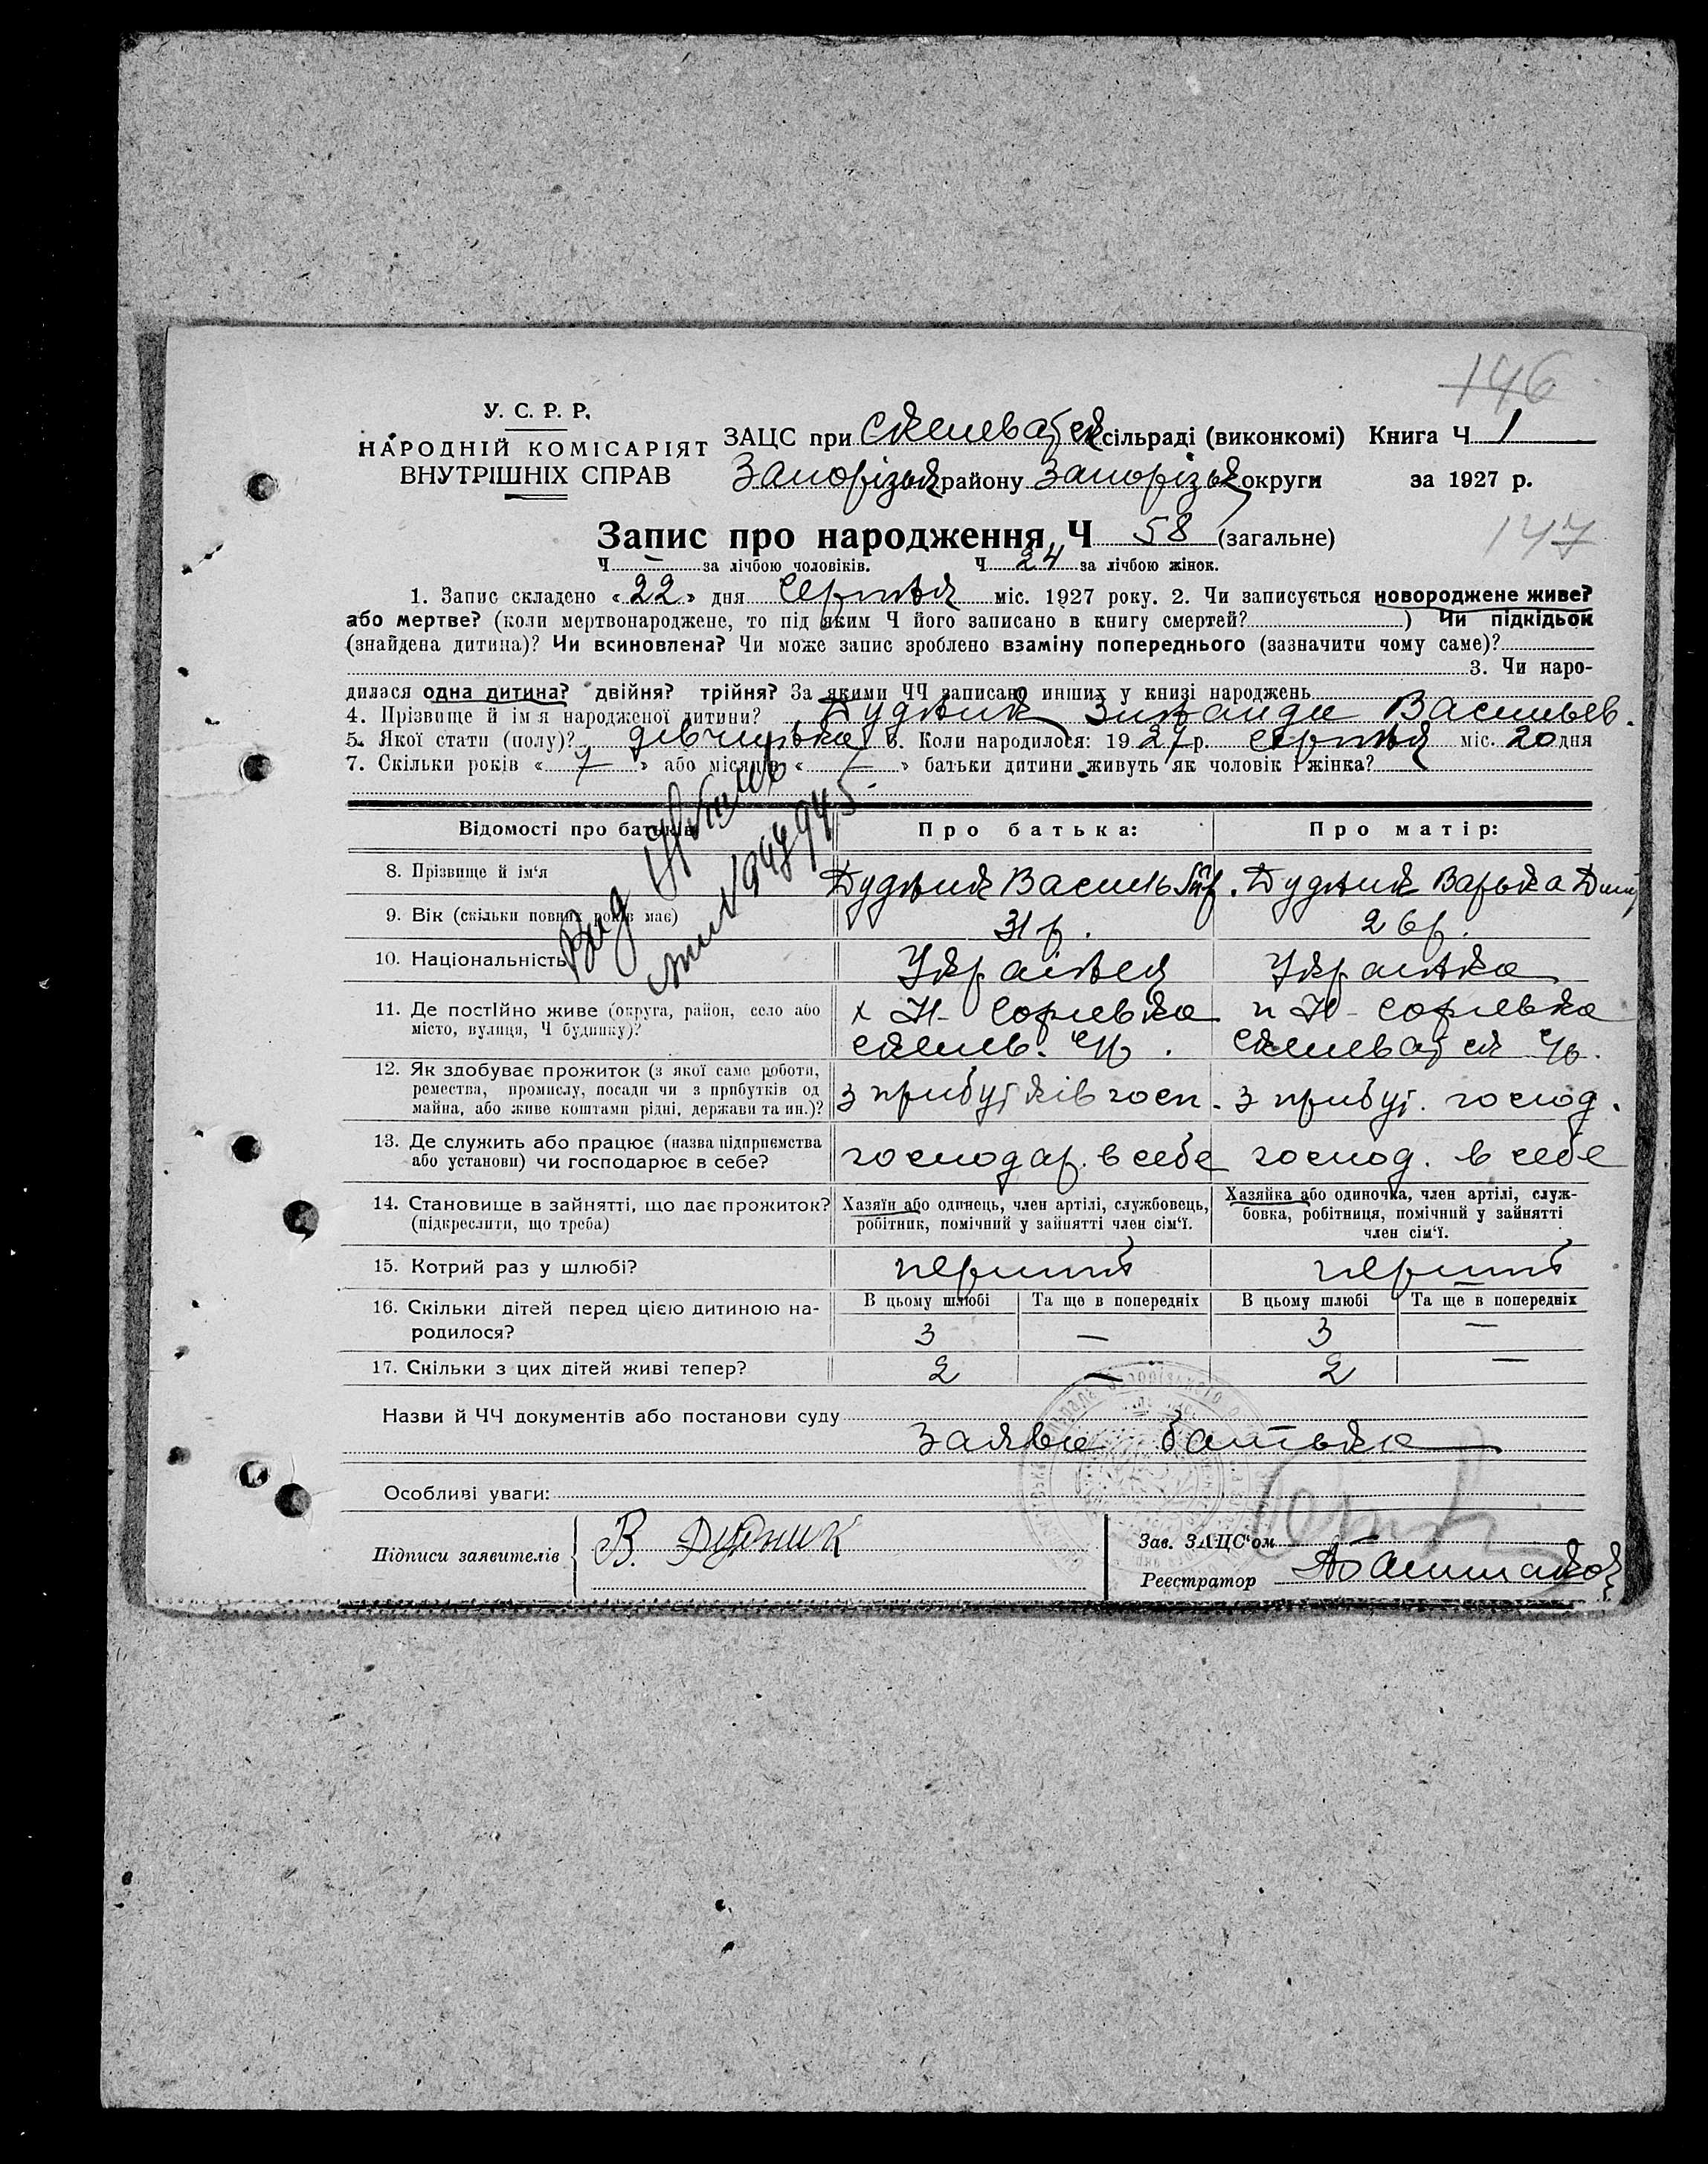 146
У. С. Р. Р.
НАРОДНІЙ КОМІСАРІЯТ
ВНУТРІШНІХ СПРАВ
ЗАЦС при Скелеватск сільраді (виконкомі) Книга Ч 1
Запорізьк району Запорізьк округи за 1927 р.
Запис про народження Ч 58 (загальне)
147
Ч — за лічбою чоловіків. Ч 24 за лічбою жінок.
1. Запис складено «22» дня серпня міс. 1927 року. 2. Чи записується новороджене живе?
або мертве? (коли мертвонароджене, то під яким Ч його записано в книгу смертей? ) Чи підкідьок
(знайдена дитина)? Чи всиновлена? Чи може запис зроблено взаміну попереднього (зазначити чому саме)?
3. Чи наро-
дилася одна дитина? двійня? трійня? За якими ЧЧ записано инших у книзі народжень
4. Прізвище й ім'я народженої дитини? Дудник Зинаида Васильев.
5. Якої стати (полу)? дівчинка 6. Коли народилося: 1927 р. серпня міс. 20 дня
7. Скільки років « 7 » або місяців « — » батьки дитини живуть як чоловік і жінка?
Відомості про батьків Про батька: Про матір:
8. Прізвище й ім'я Дудник Василь Дудник Варька Дмит
9. Вік (скільки повних років має) 31 р. 26 р.
10. Національність Українец Украінка
11. Де постійно живе (округа, район, село або
місто, вулиця, Ч будинку)? х Н- Софиевка Н- Софиевка
скелев. с/р. Скелеват ск с/р.
12. Як здобуває прожиток (з якої саме роботи,
ремества, промислу, посади чи з прибутків од
майна, або живе коштами рідні, держави та ин.)? з прибутків госп. з прибут. господ.
13. Де служить або працює (назва підприємства
або установи) чи господарює в себе? господар. в себе господ. в себе
14. Становище в зайнятті, що дає прожиток?
(підкреслити, що треба)
Хазяїн або одинець, член артілі, службовець,
робітник, помічний у зайнятті член сім'ї.
Хазяйка або одиночка, член артілі, служ-
бовка, робітниця, помічний у зайнятті
член сім'ї.
15. Котрий раз у шлюбі? перший перший
16. Скільки дітей перед цією дитиною на-
родилося?
В цьому шлюбі Та ще в попередніх В цьому шлюбі Та ще в попередніх
3 — 3 —
17. Скільки з цих дітей живі тепер? 2 — 2 —
Назви й ЧЧ документів або постанови суду
Заява батька
Особливі уваги:
Підписи заявителів В. Дудник
Зав. ЗАЦС'ом
Реєстратор